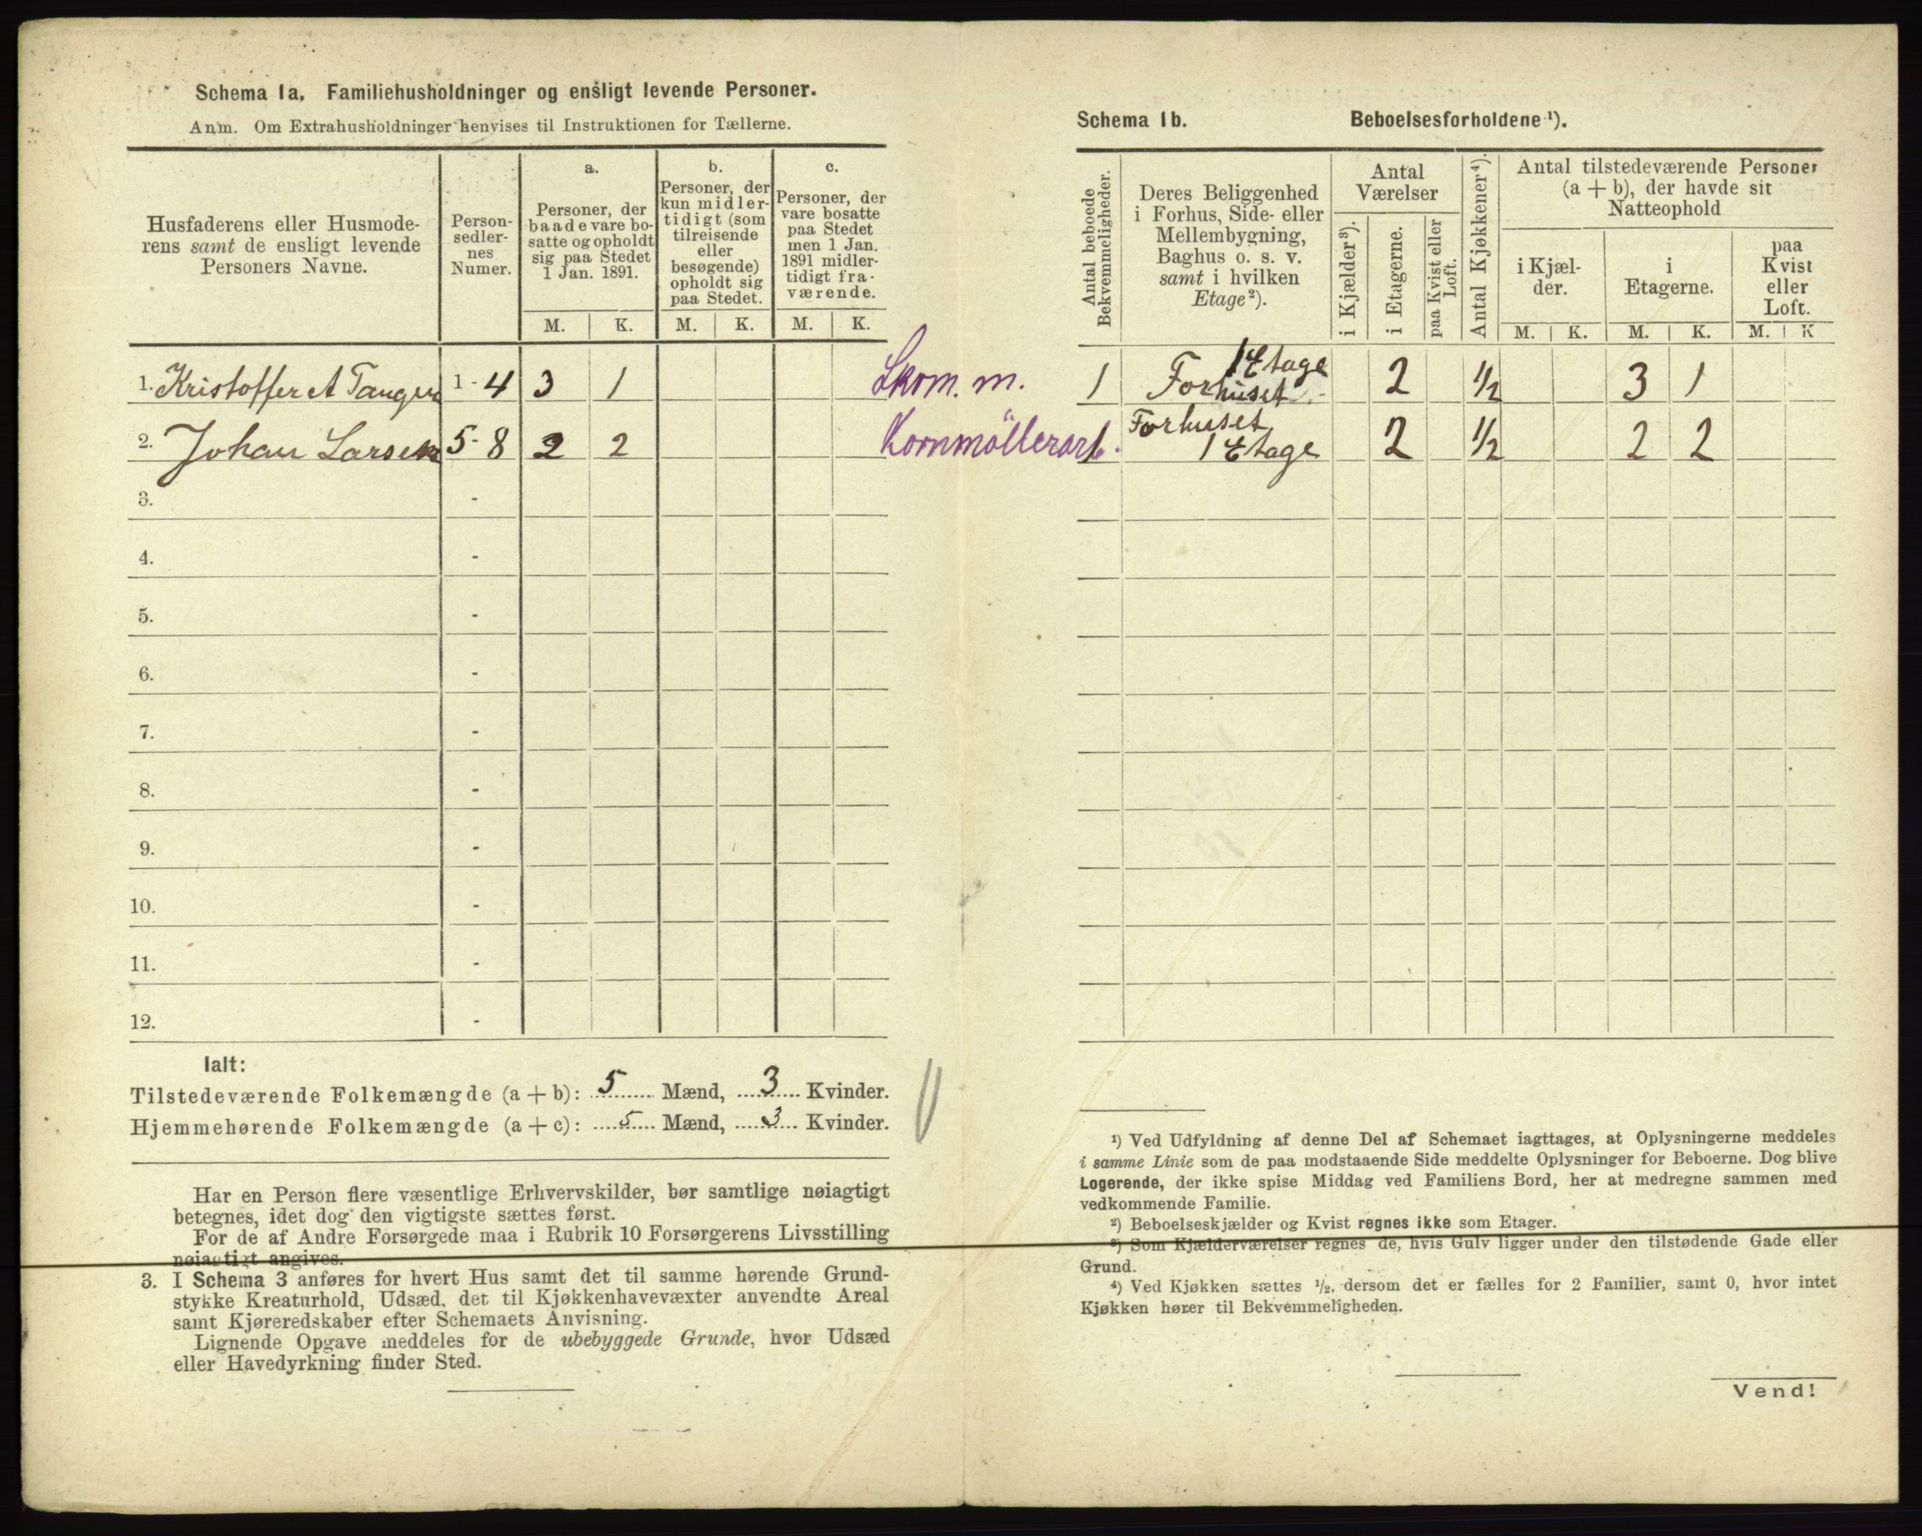 Schema 1a. Familiehusholdninger og ensligt levende Personer.
Anm. Om Extrahusholdninger henvises til Instruktionen for Tællerne.
Husfaderens eller Husmode-
rens samt de ensligt levende
Personers Navne.
Person-
sedler-
nes
Numer.
a.
Personer, der
baade vare bo-
satte og opholdt
sig paa Stedet
1 Jan. 1891.
b.
Personer, der
kun midler-
tidigt (som
tilreisende
eller
besøgende)
opholdt sig
paa Stedet.
c.
Personer, der
vare bosatte
paa Stedet
men 1 Jan.
1891 midler-
tidigt fra-
værende.
M. K. M. K. M. K.
1. Kristoffer A Tangen 1-4 3 1 Skom. m.
2. Johan Larsen 5-8 2 2 Kornmöllerarb.
3. -
4. -
5. -
6. -
7. -
8. -
9. -
10. -
11. -
12. -
Ialt:
Tilstedeværende Folkemængde (a + b): 5 Mænd, 3 Kvinder.
Hjemmehørende Folkemængde (a + c): 5 Mænd, 3 Kvinder.
Har en Person flere væsentlige Erhvervskilder, bør samtlige nøiagtigt
betegnes, idet dog den vigtigste sættes først.
For de af Andre Forsørgede maa i Rubrik 10 Forsørgerens Livsstilling
nøiagtigt angives.
3. I Schema 3 anføres for hvert Hus samt det til samme hørende Grund-
stykke Kreaturhold, Udsæd, det til Kjøkkenhavevæxter anvendte Areal
samt Kjøreredskaber efter Schemaets Anvisning.
Lignende Opgave meddeles for de ubebyggede Grunde, hvor Udsæd
eller Havedyrkning finder Sted.
Schema 1b. Beboelsesforholdene ¹).
Antal beboede
Bekvemmeligheder.
Deres Beliggenhed
i Forhus, Side- eller
Mellembygning,
Baghus o. s. v.
samt i hvilken
Etage ²).
Antal
Værelser
i Kjælder ³).
i Etagerne.
paa Kvist eller
Loft.
Antal Kjøkkener ⁴).
Antal tilstedeværende Personer
(a + b), der havde sit
Natteophold
i Kjæl-
der.
i
Etagerne.
paa
Kvist
eller
Loft.
M. K. M. K. M. K
1 Etage
1 Forhuset 2 1/2 3 1
Forhuset
1 1 Etage 2 1/2 2 2
¹) Ved Udfyldning af denne Del af Schemaet iagttages, at Oplysningerne meddeles
i samme Linie som de paa modstaaende Side meddelte Oplysninger for Beboerne. Dog blive
Logerende, der ikke spise Middag ved Familiens Bord, her at medregne sammen med
vedkommende Familie.
²) Beboelseskjælder og Kvist regnes ikke som Etager.
³) Som Kjælderværelser regnes de, hvis Gulv ligger under den tilstødende Gade eller
Grund.
⁴) Ved Kjøkken sættes ½, dersom det er fælles for 2 Familier, samt 0, hvor intet
Kjøkken hører til Bekvemmeligheden.
Vend!